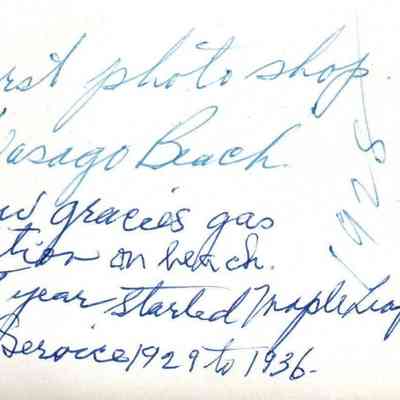 rst photo shop.
Wasago Beach.
gracie's gas
tion on beach.
year started Maple Leaf
Service 1929 to 1936.
1928